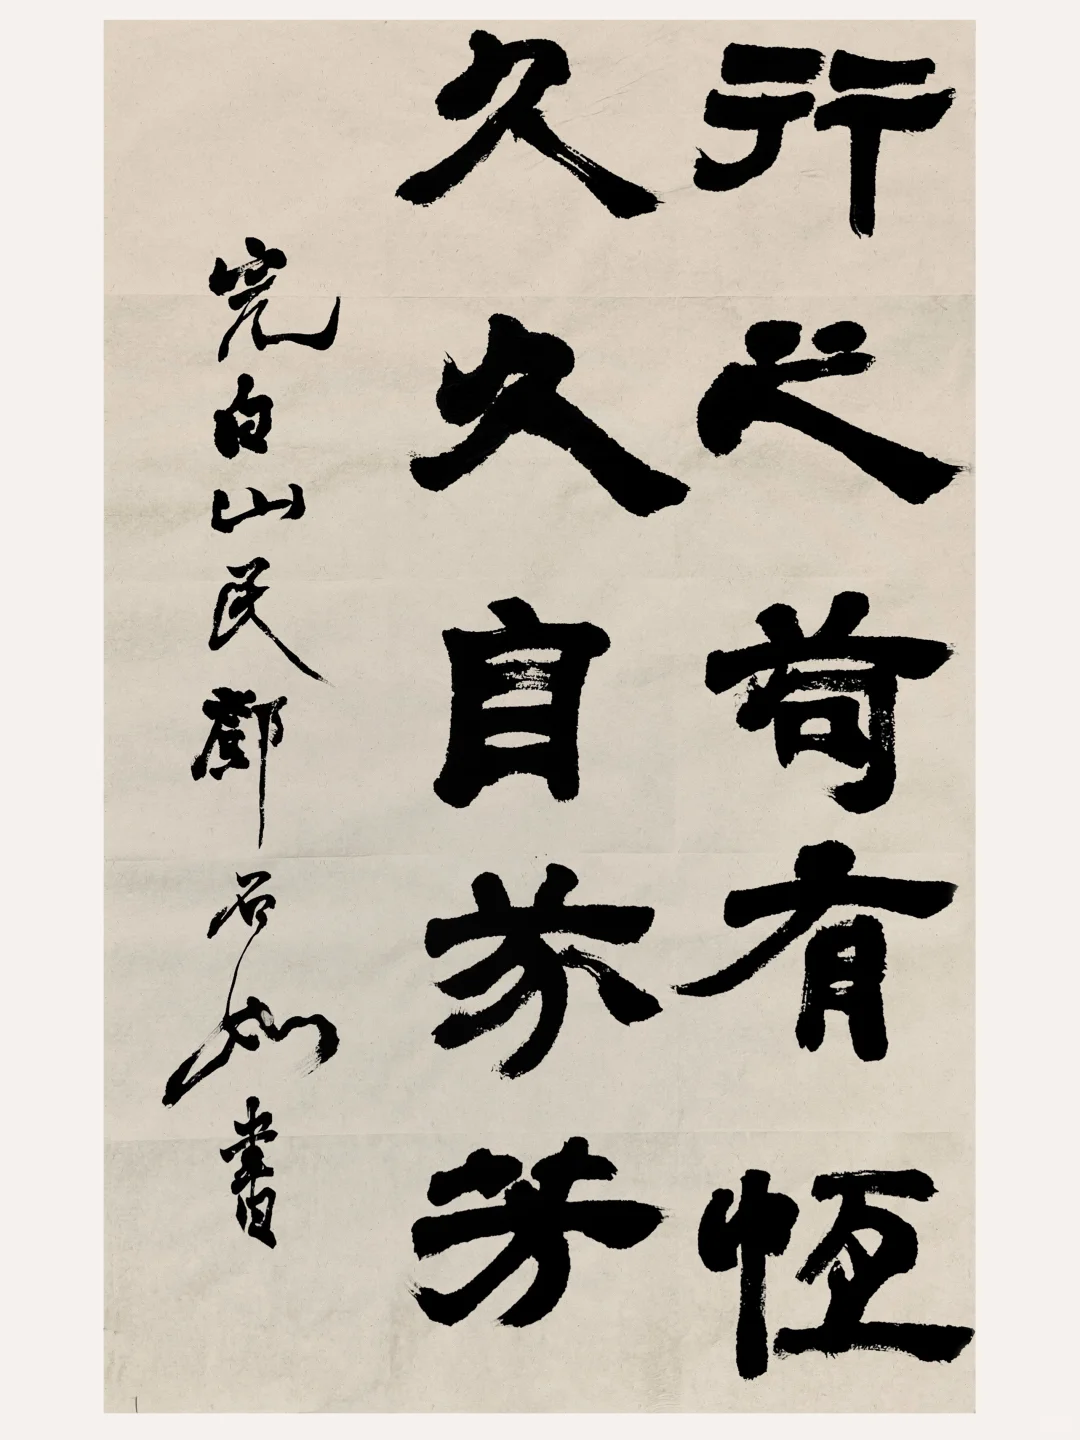 行之苟有恆
久久自芬芳
完白山民鄧石如書